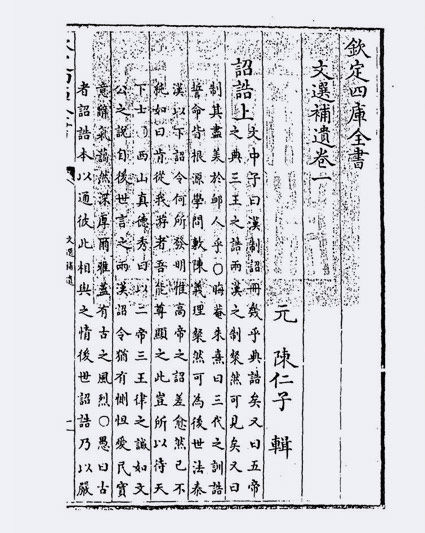 欽定四庫全書
文選補遺卷一
元 陳仁子 輯
詔誥上
文中子曰漢制詔冊幾乎典誥矣又曰五帝
之典三王之誥兩漢之制粲然可見矣又曰
制其盡美於邺人乎○晦菴朱熹曰三代之訓誥
誓命皆根源學問敷陳義理粲然可為後世法秦
漢以下詔令何所發明惟高帝之詔差愈然已不
純如曰肯從我游者吾能尊顯之此豈所以待天
下士 西山真德秀曰以二帝三王律之誠如文
公之説自後世言之兩漢詔令猶有惻怛愛民實
意辭氣藹然深厚爾雅蓋有古之風烈○愚曰古
者詔誥本以通彼此相與之情後世詔誥乃以嚴
文選補遺
一